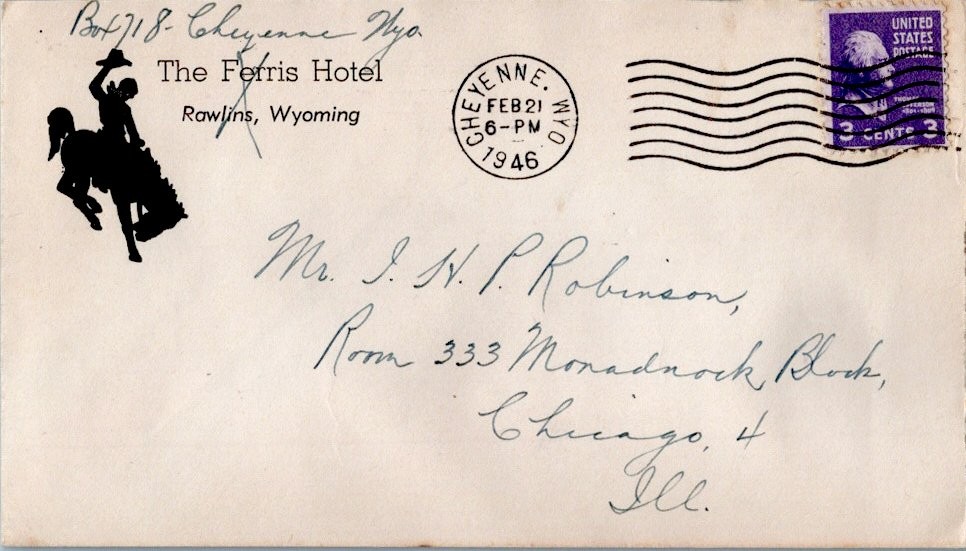 Box 718- Cheyenne Wyo
The Ferris Hotel
Rawlins, Wyoming
CHEYENNE. WYO
FEB 21
6-PM
1946
UNITED
STATES
POSTAGE
THOMAS
JEFFERSON
3 CENTS 3
Mr. I. H. P. Robinson,
Room 333 Monadnock Block,
Chicago, 4
Ill.